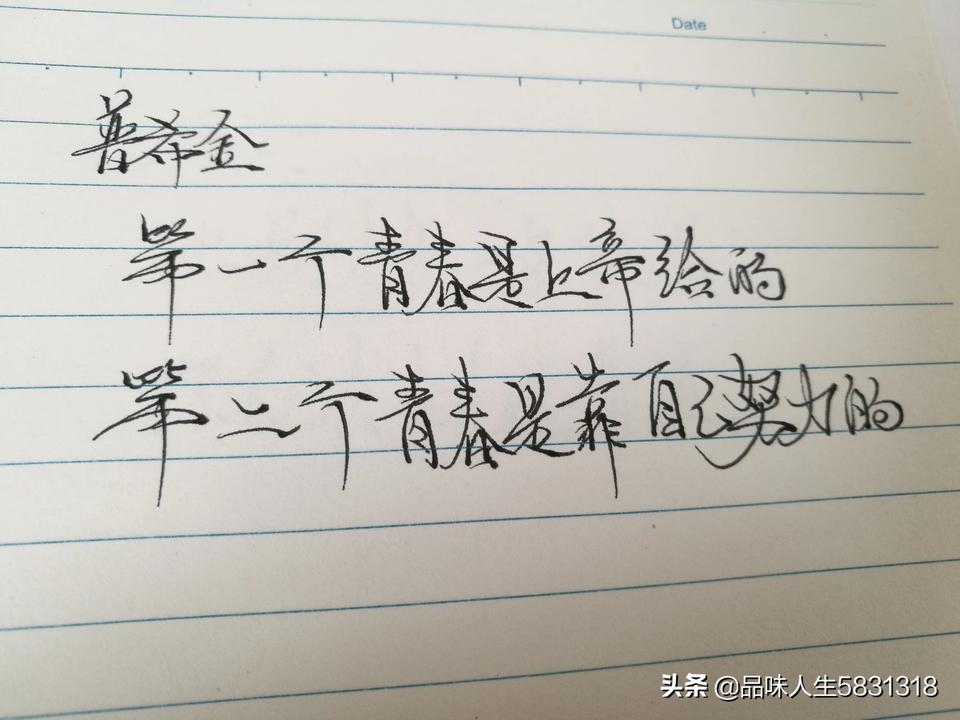 Date
普希金
第一个青春是上帝给的
第二个青春是靠自己努力的
头条 @品味人生5831318